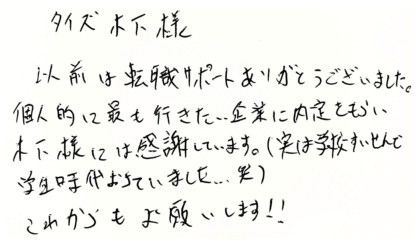 タイズ 木下 様
以前は転職サポートありがとうございました。
個人的に最も行きたい企業に内定をもらい
木下様には感謝しています。(実は学校すいせんで
学生時代おちていました…笑)
これからもお願いします!!